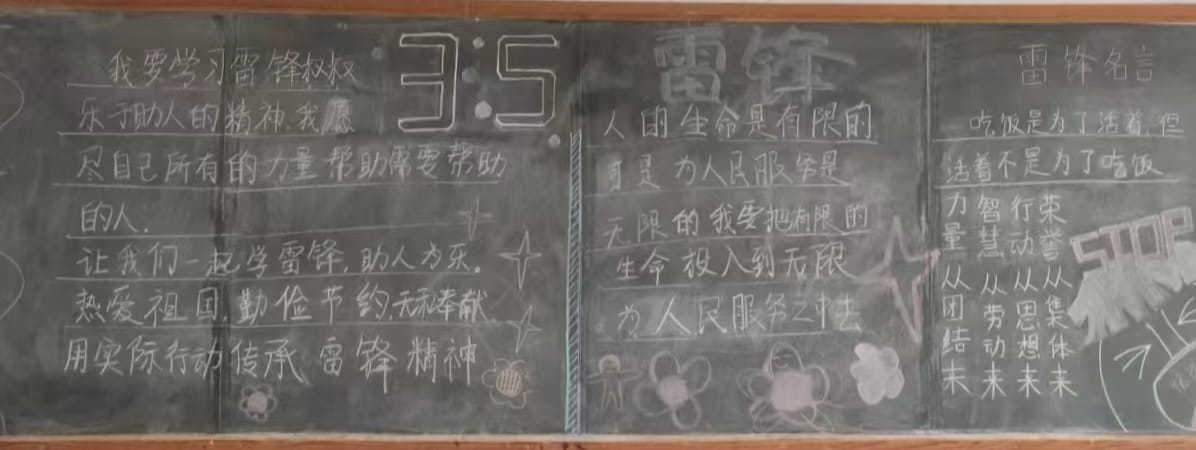 我要学习雷锋叔叔
乐于助人的精神.我愿
尽自己所有的力量帮助需要帮助
的人.
让我们一起学雷锋,助人为乐。
热爱祖国,勤俭节约,无私奉献
用实际行动传承雷锋精神
3:5
雷锋
人的生命是有限的
可是为人民服务是
无限的我要把有限的
生命投入到无限
为人民服务之中去
雷锋名言
吃饭是为了活着,但
活着不是为了吃饭
力量从团结来
智慧从劳动来
行动从思想来
荣誉从集体来
STOP